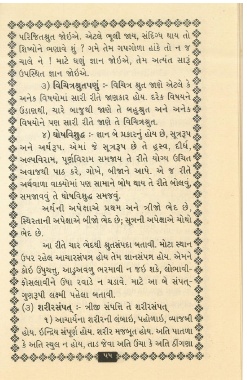 પરિજિતશ્રુત જોઇએ. એટલે ભૂલી જાય, સંદિગ્ધ થાય તો
શિષ્યોને ભણાવે શું ? ગમે તેમ ગપગોળા હાંકે તો ન જ
ચાલે ને ! માટે ઘણું જ્ઞાન જોઇએ, તેમ અત્યંત સારૂ
ઉપસ્થિત જ્ઞાન જોઇએ.
૩) વિચિત્રશ્રુતપણું :- વિચિત્ર શ્રુત જાણે એટલે કે
અનેક વિષયોમાં સારી રીતે જાણકાર હોય. દરેક વિષયને
ઉંડાણથી, ચારે બાજુથી જાણે તે બહુશ્રુત અને અનેક
વિષયોને પણ સારી રીતે જાણે તે વિચિત્રશ્રુત.
૪) ઘોષવિશુદ્ધ :- જ્ઞાન બે પ્રકારનું હોય છે, સૂત્રરૂપ
અને અર્થરૂપ. એમાં જે સૂત્રરૂપ છે તે હ્રસ્વ, દીર્ઘ,
અલ્પવિરામ, પૂર્ણવિરામ સમજાય તે રીતે યોગ્ય ઉચિત
અવાજથી પાઠ કરે, ગોખે, બીજાને આપે. એ જ રીતે
અર્થવાળા વાક્યોમાં પણ સામાને બોધ થાય તે રીતે બોલવું,
સમજાવવું તે ઘોષવિશુદ્ધ સમજવું.
અર્થની અપેક્ષાએ પ્રથમ અને ત્રીજો ભેદ છે,
સ્થિરતાની અપેક્ષાએ બીજો ભેદ છે; સૂત્રની અપેક્ષાએ ચોથો
ભેદ છે.
આ રીતે ચાર ભેદથી શ્રુતસંપદા બતાવી. મોટા સ્થાન
ઉપર રહેલ આચારસંપન્ન હોય તેમ જ્ઞાનસંપન્ન હોય. એમને
કોઈ ઉંધુચતુ, આડુઅવળુ ભરમાવી ન જઈ શકે, લોભાવી-
ફોસલાવીને ઉંધા રવાડે ન ચડાવે. માટે આ બે સંપત્-
ગુણરૂપી લક્ષ્મી પહેલા બતાવી.
(૩) શરીરસંપત્ :- ત્રીજી સંપત્તિ તે શરીરસંપત્
૧) આચાર્યના શરીરની લંબાઇ, પહોળાઇ, વ્યાજબી
હોય. ઇન્દ્રિય સંપૂર્ણ હોય. શરીર મજબૂત હોય. અતિ પાતળા
કે અતિ સ્થૂલ ન હોય, તાડ જેવા અતિ ઉંચા કે અતિ ઠીંગણા
૫૫